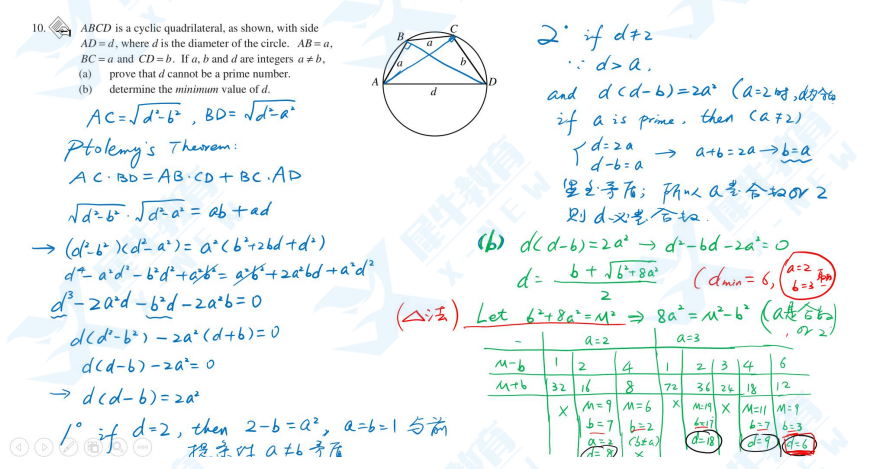 10. ABCD is a cyclic quadrilateral, as shown, with side
AD = d, where d is the diameter of the circle. AB = a,
BC = a and CD = b. If a, b and d are integers a ≠ b,
(a) prove that d cannot be a prime number.
(b) determine the minimum value of d.
A
B
C
D
a
a
b
d
AC = √(d²-b²) , BD = √(d²-a²)
Ptolemy's Theorem:
AC·BD = AB·CD + BC·AD
√(d²-b²) · √(d²-a²) = ab + ad
→ (d²-b²)(d²-a²) = a²(b²+2bd+d²)
d⁴-a²d²-b²d²+a²b² = a²b²+2a²bd+a²d²
d³-2a²d-b²d-2a²b = 0
d(d²-b²) - 2a²(d+b) = 0
d(d-b) - 2a² = 0
→ d(d-b) = 2a²
1° if d=2, then 2-b=a², a=b=1 与前
提条件 a≠b 矛盾
2° if d≠2
∵ d>a,
and d(d-b)=2a² (a=2时,
if a is prime, then (a≠2)
{ d=2a
d-b=a → a+b=2a → b=a
矛盾; 所以 a是合数 or 2
则 d 是合数.
(b) d(d-b)=2a² → d²-bd-2a²=0
d = (b+√(b²+8a²))/2 (dmin=6, a=2 b=3
(△法) Let b²+8a²=M² ⇒ 8a²=M²-b² (a是合数, or 2)
- a=2 a=3
M-b 1 2 4 1 2 3 4 6
M+b 32 16 8 72 36 24 18 12
X M=9 M=6 X M=19 X M=11 M=9
b=7 b=2 b=17 b=7 b=3
a=2 (b≠a) d=18 d=9 d=6
d=8 X
犀牛教育
X-NEW